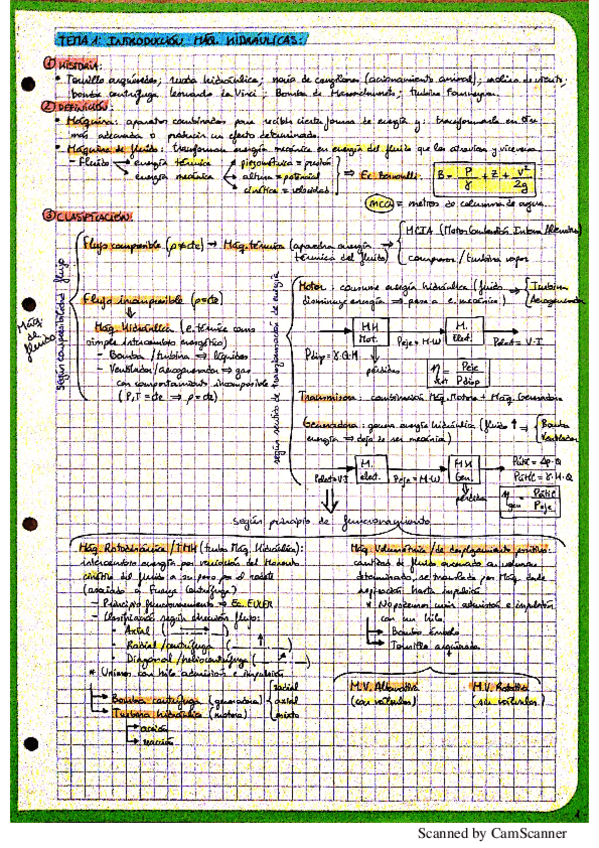 TEMA 1: INTRODUCCIÓN MÁQ. HIDRÁULICAS:
① HISTORIA:
• Tornillo arquímedes; rueda hidráulica; noria de cangilones (accionamiento animal); molino de viento;
bomba centrífuga Leonardo da Vinci; Bomba de; turbina Fourneyron.
② DEFINICIÓN:
• Máquina: aparatos combinados para recibir cierta forma de energía y: transformarla en otra
más adecuada o producir un efecto determinado.
• Máquina de fluido: transforman energía mecánica en energía del fluido que las atraviesa y viceversa
- Fluido → energía térmica
→ energía mecánica
piezométrica = presión
altura = potencial
cinética = velocidad
⇒ Ec. Bernoulli:
B = P/γ + z + v²/2g
mca = metros de columna de agua.
③ CLASIFICACIÓN:
Máq. de fluido
según compresibilidad flujo
Flujo compresible (ρ≠cte) → Máq. térmica (aparatos energía
térmica del fluido)
MCIA (Motor Combustión Interna Alternativo)
compresor / turbina vapor
Flujo incompresible (ρ=cte)
Máq. Hidráulica (e. térmica como
simple intercambio energético)
- Bomba / turbina ⇒ líquidos
- Ventilador/aerogenerador ⇒ gas
con comportamiento incompresible
(P,T = cte ⇒ ρ = cte)
según sentido de transformación de energía
Motor: consume energía hidráulica (fluido
disminuye energía ⇒ pasa a e. mecánica)
Turbina
Aerogenerador
Pdisp = γ·Q·H
MH Mot.
Peje = M·W
M. elect.
Pelect = V·I
pérdidas
η mot = Peje / Pdisp
Transmisora: combinación Máq. Motora + Máq. Generadora
Generadora: genera energía hidráulica (fluido ↑
energía ⇒ deja de ser mecánica)
Bomba
Ventilador
Pelect = V·I
M. elect.
Peje = M·W
MH Gen.
Pútil = Δp·Q
Pútil = γ·H·Q
pérdidas
η gen = Pútil / Peje
según principio de funcionamiento
Máq. Rotodinámica / TMH (turbo Máq. Hidráulica):
intercambio energía por variación del Momento
cinético del fluido a su paso por el rodete
(asociado a Fuerza Centrífuga)
- Principio funcionamiento ⇒ Ec. EULER
- Clasificación según dirección flujo:
• Axial
• Radial / centrífuga
• Diagonal / heliocentrífuga
* Unimos con hilo admisión e impulsión
Bomba centrífuga (generadora)
Turbina hidráulica (motora)
radial
axial
mixto
acción
reacción
Máq. Volumétrica / de desplazamiento positivo:
cantidad de fluido encerrado en volumen
determinado, se traslada por Máq. desde
aspiración hasta impulsión
* No podemos unir admisión e impulsión
con un hilo
Bomba émbolo
Tornillo arquímedes
M.V. Alternativa
(con válvulas)
M.V. Rotativa
(sin válvulas)
1
Scanned by CamScanner